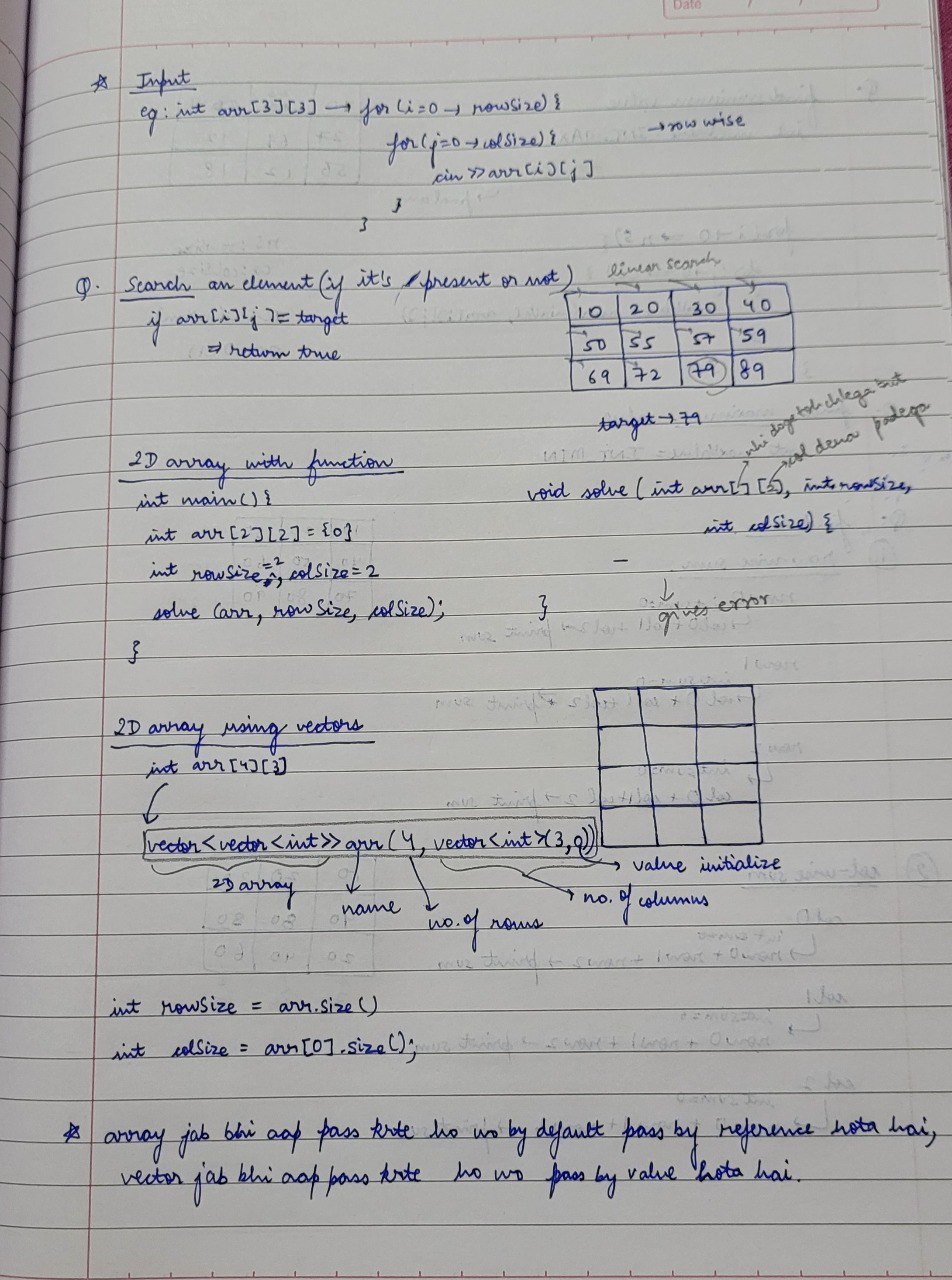 Date
☆ Input
eg: int arr[3][3] → for (i=0 → rowSize) {
for (j=0 → colSize) { → row wise
cin >> arr[i][j]
}
}
Q. Search an element (if it's present or not)
if arr[i][j] = target
⇒ return true
linear search
10 20 30 40
50 55 57 59
69 72 79 89
target → 79
2D array with function
int main() {
int arr[2][2] = {0}
int rowSize = 2, colSize = 2
solve (arr, rowSize, colSize);
}
col dena padega
void solve (int arr[][], int rowSize,
int colSize) {
—
}
↓
gives error
2D array using vectors
int arr[4][3]
vector<vector<int>> arr(4, vector<int>(3,0))
→ value initialize
2D array
name
no. of rows
→ no. of columns
int rowSize = arr.size()
int colSize = arr[0].size();
☆ array jab bhi aap pass krte ho wo by default pass by reference hota hai,
vector jab bhi aap pass krte ho wo pass by value hota hai.